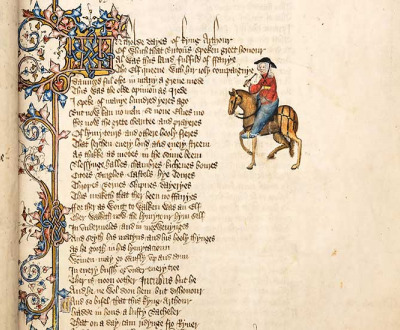 In tholde dayes of kyng Arthour
Of which that Britons speken greet honour
Al was this land fulfild of ffairye
The Elf queene with hir ioly compaignye
Daunced ful ofte in many a grene mede
This was the olde opinion as I rede
I speke of manye hundred yeres ago
But now kan no man se none Elues mo
ffor now the grete charitee and prayeres
Of lymytours and othere hooly freres
That serchen euery lond and euery streem
As thikke as motes in the sonne beem
Blessynge halles chambres kichenes boures
Citees Burghes Castels hye Toures
Thropes Bernes Shipnes Dayeryes
This maketh that ther been no ffairyes
ffor ther as wont to walken was an Elf
Ther walketh now the lymytour hym self
In vndermeles and in morwenynges
And seyth his matyns and his hooly thynges
As he gooth in his lymytacioun
Wommen may go saufly vp and doun
In euery bussh or vnder euery tree
Ther is noon oother Incubus but he
And he ne wol doon hem but dishonour
And so bifel that this kyng Arthour
hadde in hous a lusty Bacheler
That on a day cam ridynge fro Ryuer